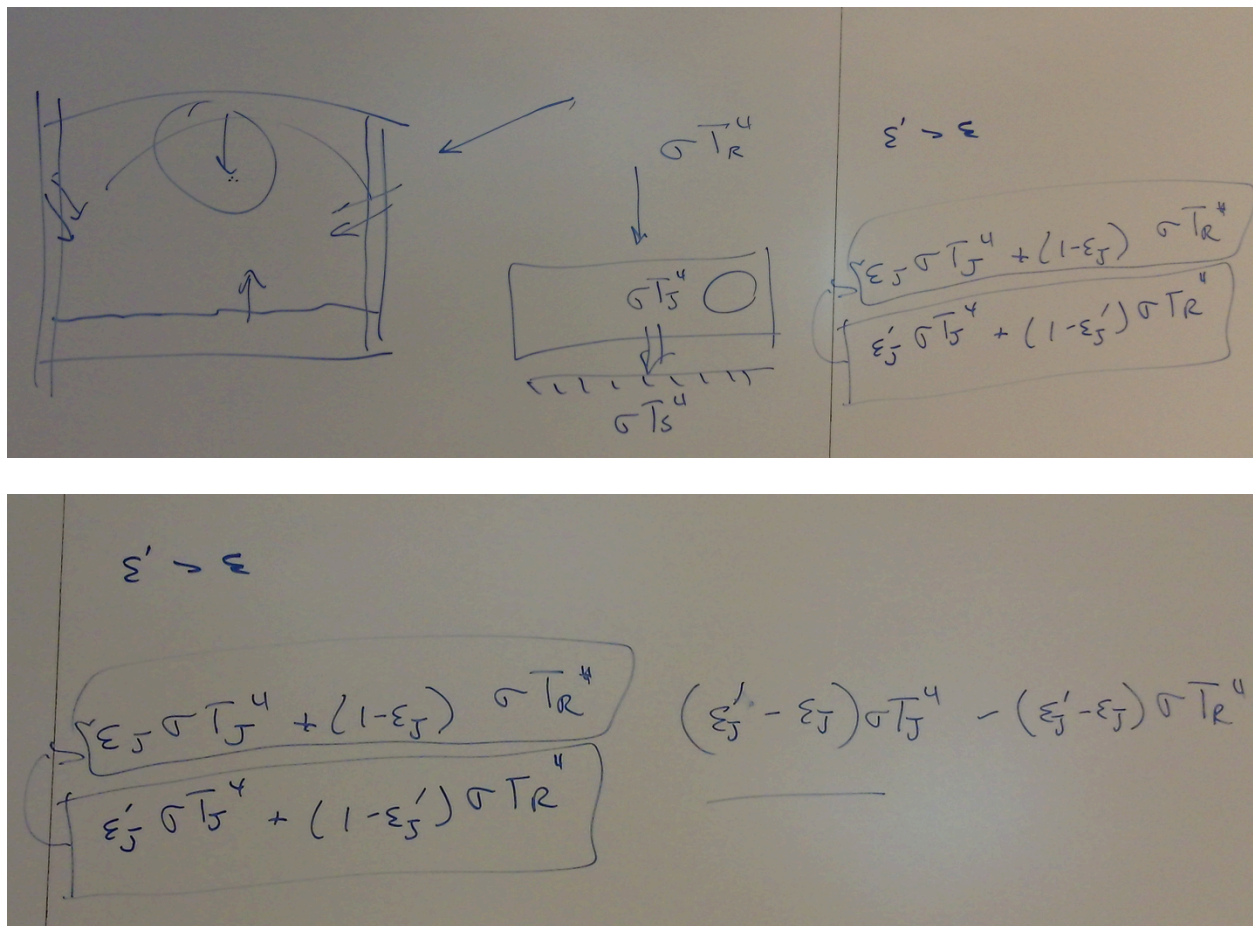 σT_R⁴
ε' > ε
σT_J⁴
σT_S⁴
ε_J σT_J⁴ + (1-ε_J) σT_R⁴
ε'_J σT_J⁴ + (1-ε'_J) σT_R⁴
ε' > ε
ε_J σT_J⁴ + (1-ε_J) σT_R⁴
(ε'_J - ε_J)σT_J⁴ - (ε'_J-ε_J) σT_R⁴
ε'_J σT_J⁴ + (1-ε'_J) σT_R⁴